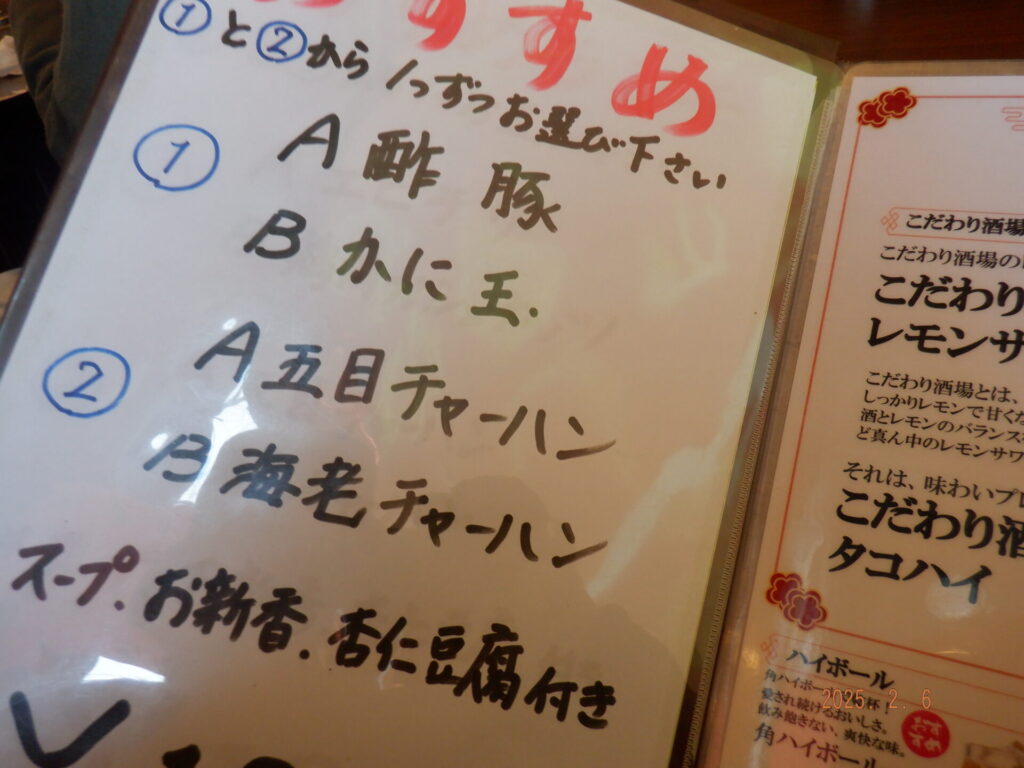 すすめ
①と②から1つずつお選び下さい
① A 酢豚
B かに玉
② A 五目チャーハン
B 海老チャーハン
スープ.お新香.杏仁豆腐付き
こだわり酒場
こだわり酒場の
こだわり
レモンサ
こだわり酒場とは、
しっかりレモンで甘くな
酒とレモンのバランス
ど真ん中のレモンサワ
それは、味わいプ
こだわり酒
タコハイ
ハイボール
角ハイボー 杯!
愛され続けるおいしさ。
飲み飽きない、爽快な味。
角ハイボール
おすすめ
2025 2. 6